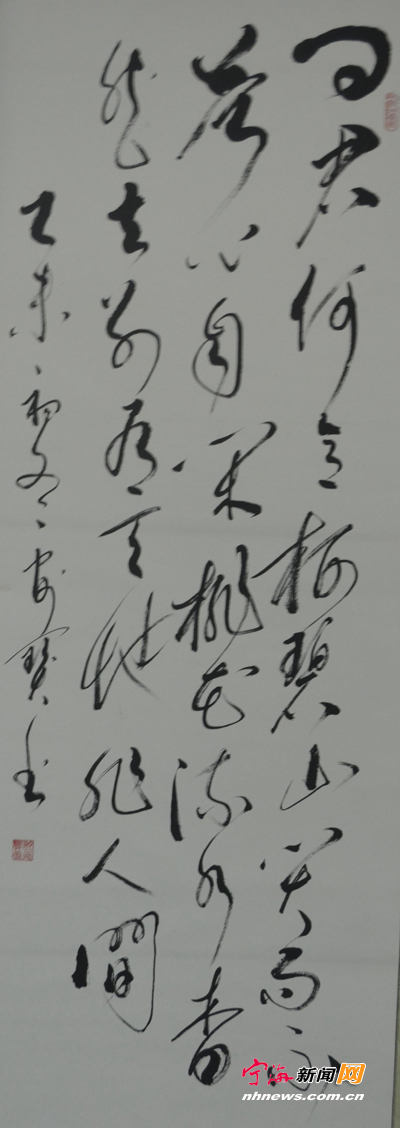 问君何意栖碧山笑而不
答心自闲桃花流水杳
然去别有天地非人間
乙未初 书
宁海新闻网
nhnews.com.cn